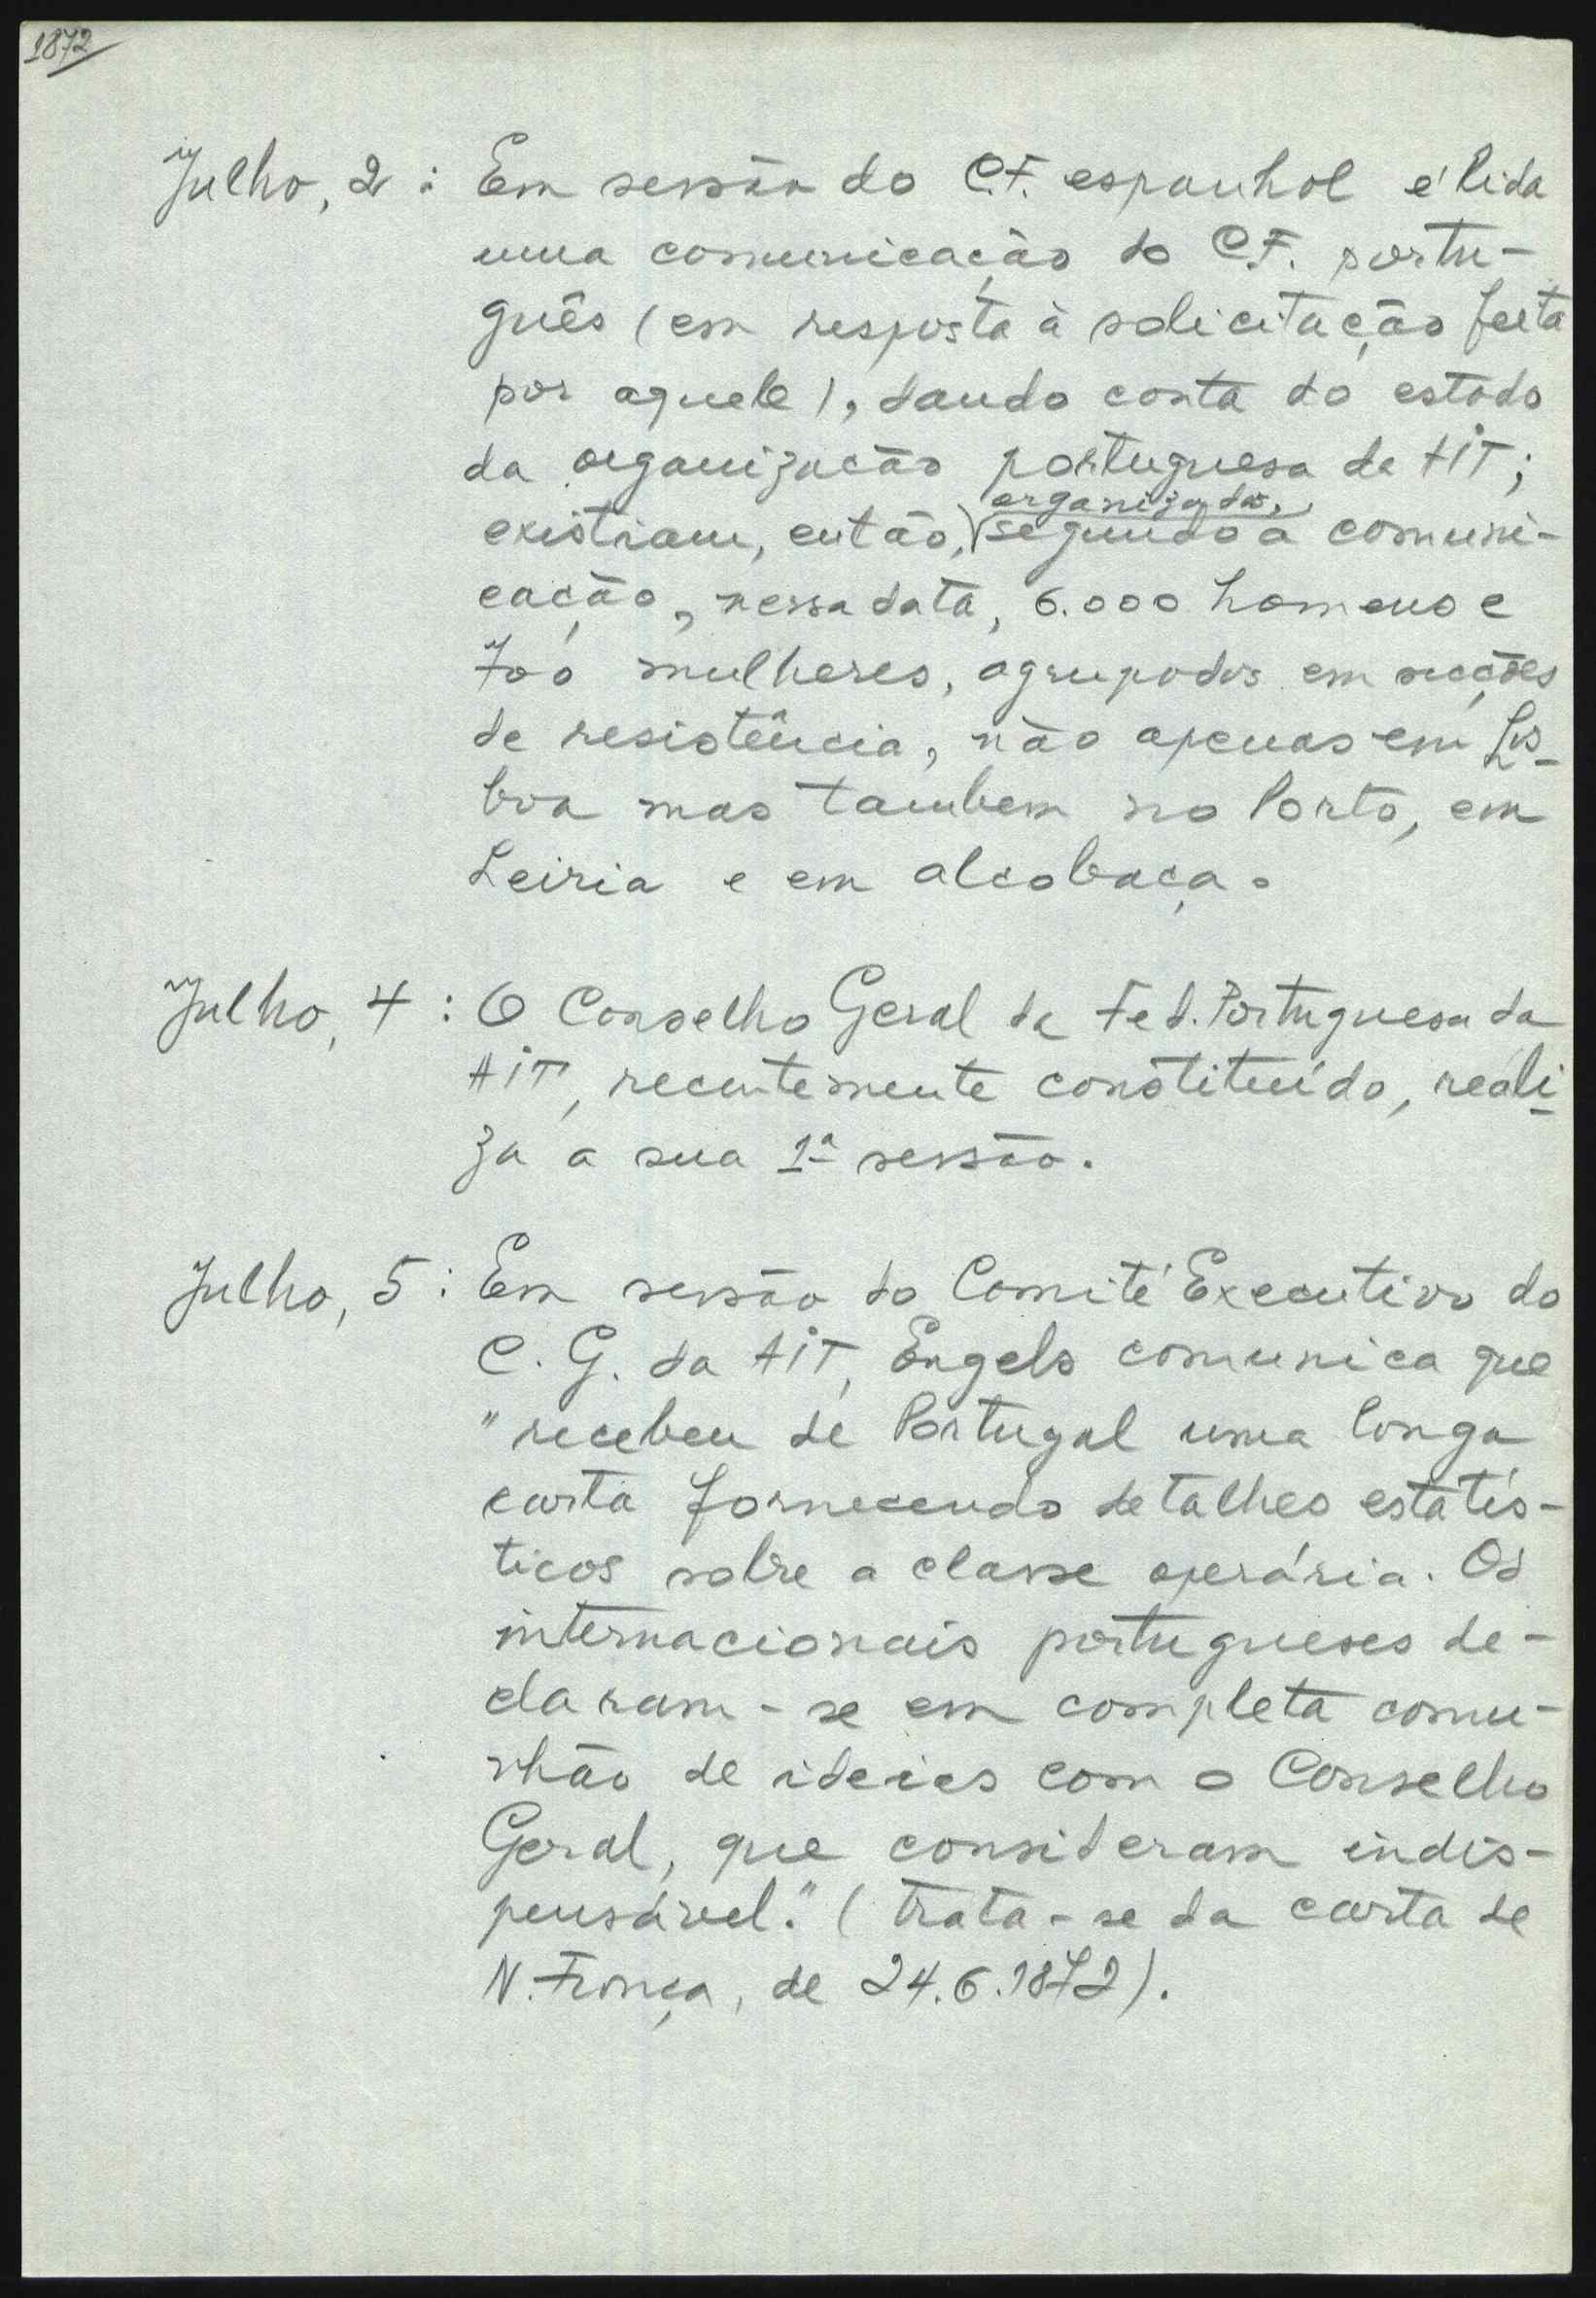 1872
Julho, 2 : Em sessão do C.F. espanhol é lida
uma comunicação do C.F. portu-
guês (em resposta à solicitação feita
por aquele), dando conta do estado
da organização portuguesa da AIT;
organizados,
existiam, então, segundo a comuni-
cação, nessa data, 6.000 homens e
700 mulheres, agrupados em secções
de resistência, não apenas em Lis-
boa mas tambem no Porto, em
Leiria e em Alcobaça.
Julho, 4 : O Conselho Geral da Fed. Portuguesa da
AIT, recentemente constituído, reali-
za a sua 1ª sessão.
Julho, 5 : Em sessão do Comité Executivo do
C. G. da AIT, Engels comunica que
"recebeu de Portugal uma longa
carta fornecendo detalhes estatís-
ticos sobre a classe operária. Os
internacionais portugueses de-
claram-se em completa comu-
nhão de ideias com o Conselho
Geral, que consideram indis-
pensável." (trata-se da carta de
N. França, de 24.6.1872).